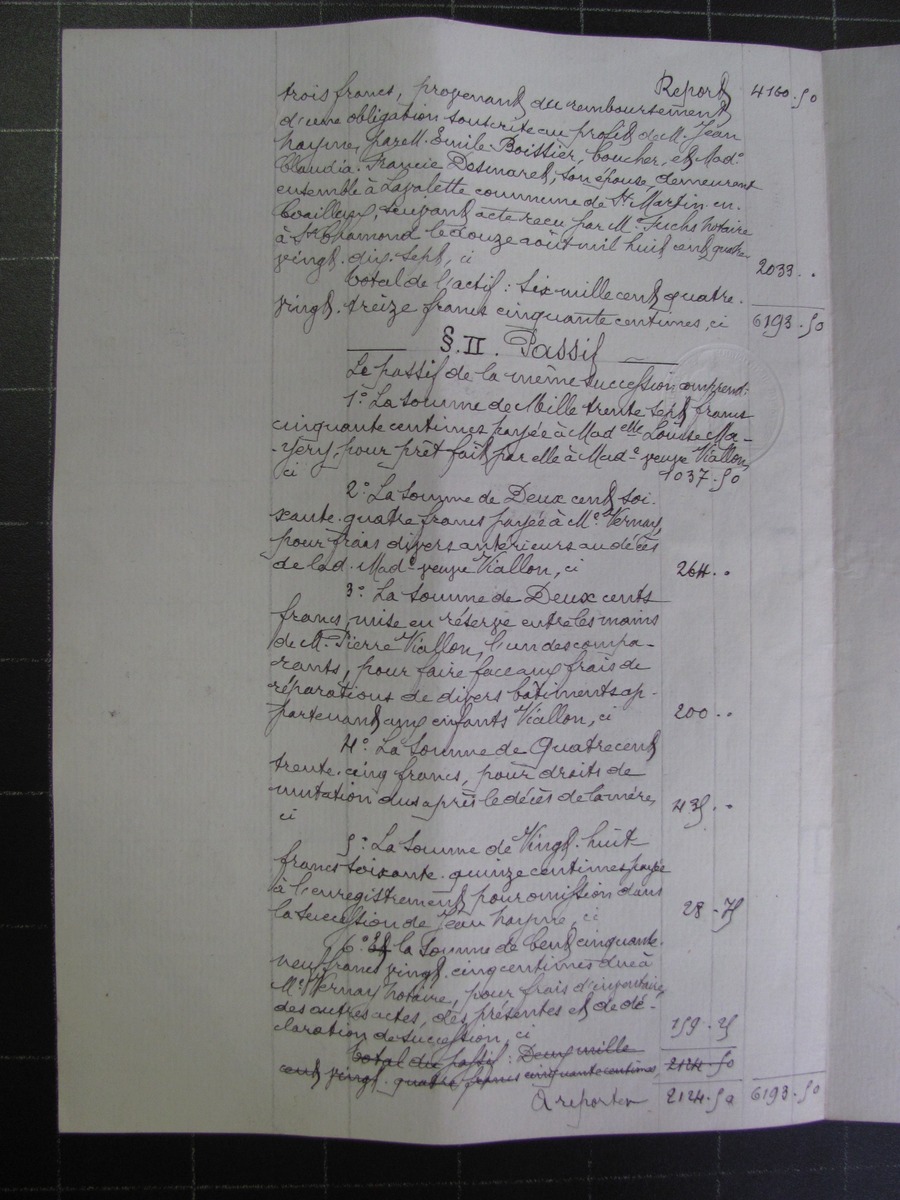 Report 4160.50
trois francs, provenant du remboursement
d'une obligation souscrite au profit de M. Jean
hayme, par M. Emile Boissier, boucher, et Mad.e
Claudia Francie Desmaret, son épouse, demeurant
ensemble à Lavalette commune de St Martin en
Coailleux, suivant acte reçu par Me Fuchs notaire
à St Chamond le douze août mil huit cent quatre
vingt. dix. sept, ci 2033 . .
Total de l'actif : Six mille cent quatre.
vingt. treize francs cinquante centimes, ci 6193.50
§. II. Passif
Le passif de la même succession comprend:
1° La somme de Mille trente sept francs
cinquante centimes payée à Mad elle Louise Ma-
-yery, pour prêt fait par elle à Mad.e veuve Viallon,
ci 1037.50
2° La somme de Deux cent soi-
xante. quatre francs payée à Me Vernay,
pour frais divers antérieurs au décès
de lad. Mad.e veuve Viallon, ci 264 . .
3° La somme de Deux cents
francs, mise en réserve entre les mains
de M. Pierre Viallon, l'un des compa-
rants, pour faire face aux frais de
réparations de divers bâtiments ap-
partenant aux enfants Viallon, ci 200 . .
4° La somme de Quatre cent
trente. cinq francs, pour droits de
mutation dus après le décès de la mère,
ci 435 . .
5° La somme de Vingt. huit
francs soixante. quinze centimes payée
à l'enregistrement pour omission dans
la succession de Jean hayme, ci 28 - 75
6° Et la somme de Cent cinquante.
neuf francs vingt. cinq centimes due à
Me Vernay notaire, pour frais d'inventaire,
des autres actes, des présentes et de dé-
claration de succession, ci 159.25
Total du passif : Deux mille
cent vingt. quatre francs cinquante centimes, 2124.50
A reporter 2124.50 6193.50